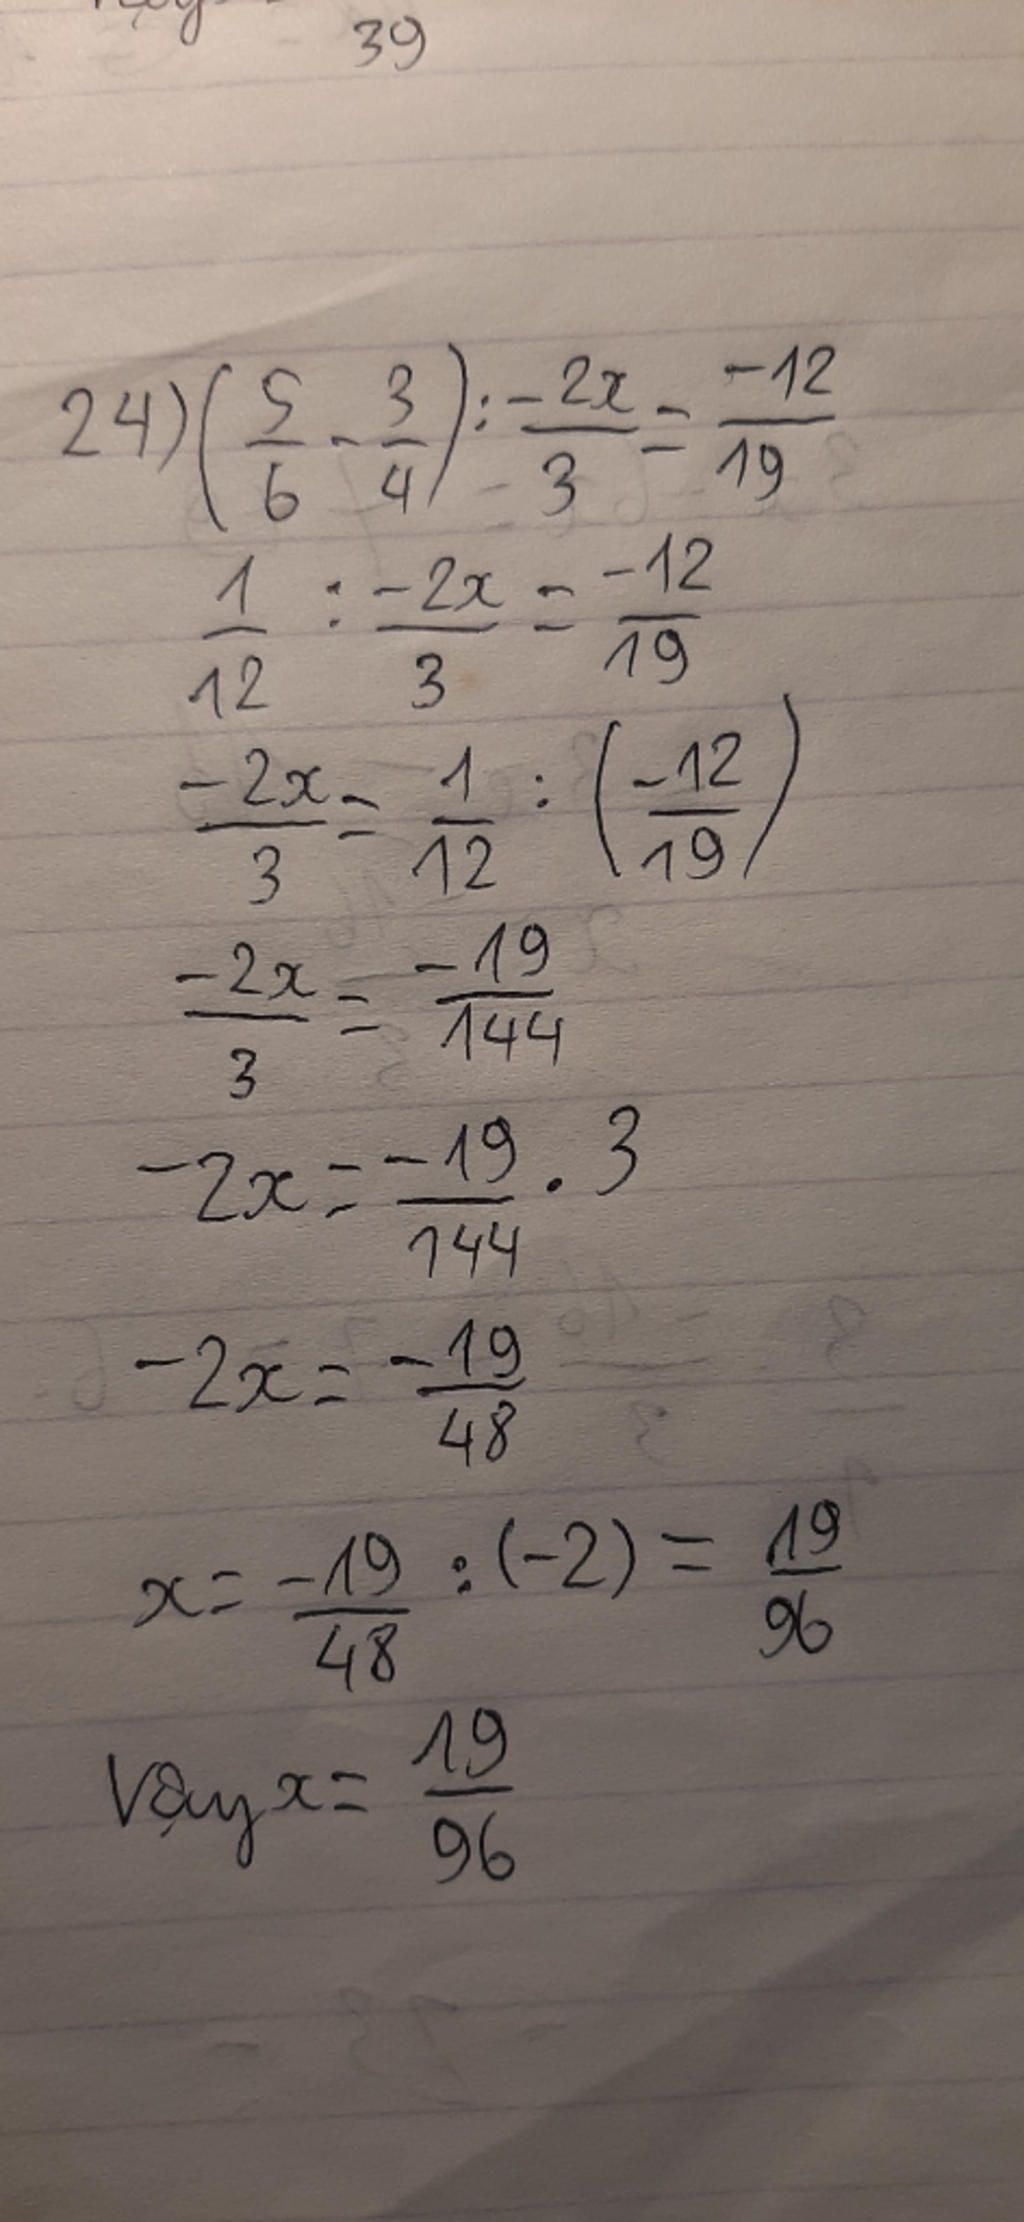 39
24) (5/6 - 3/4) : -2x/3 = -12/19
1/12 : -2x/3 = -12/19
-2x/3 = 1/12 : (-12/19)
-2x/3 = -19/144
-2x = -19/144 . 3
-2x = -19/48
x = -19/48 : (-2) = 19/96
Vậy x = 19/96